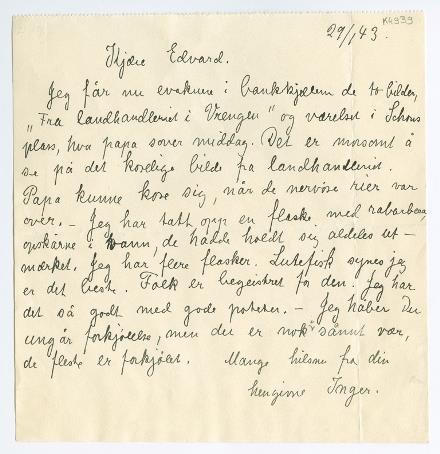 K4939
29/1 43.
Kjære Edvard.
Jeg får nu evakure i bankkjelleren de to bilder,
"Fra landhandleriet i Vrengen" og værelset i Schous
plass, hvor papa sover middag. Det er morsomt å
se på det koselige bilde fra landhandleriet.
Papa kunne kose sig, når de nervøse rier var
over. – Jeg har tatt opp en flaske med rabarbra,
opskårne i vann, de hadde holdt sig aldeles ut-
mærket. Jeg har flere flasker. Lutefisk synes jeg
er det beste. Folk er begeistret for den. Jeg har
det så godt med gode poteter. – Jeg håber Du
ungår forkjølelse, men det er nok sånnt vær,
de fleste er forkjølet. Mange hilsner fra din
hengivne Inger.